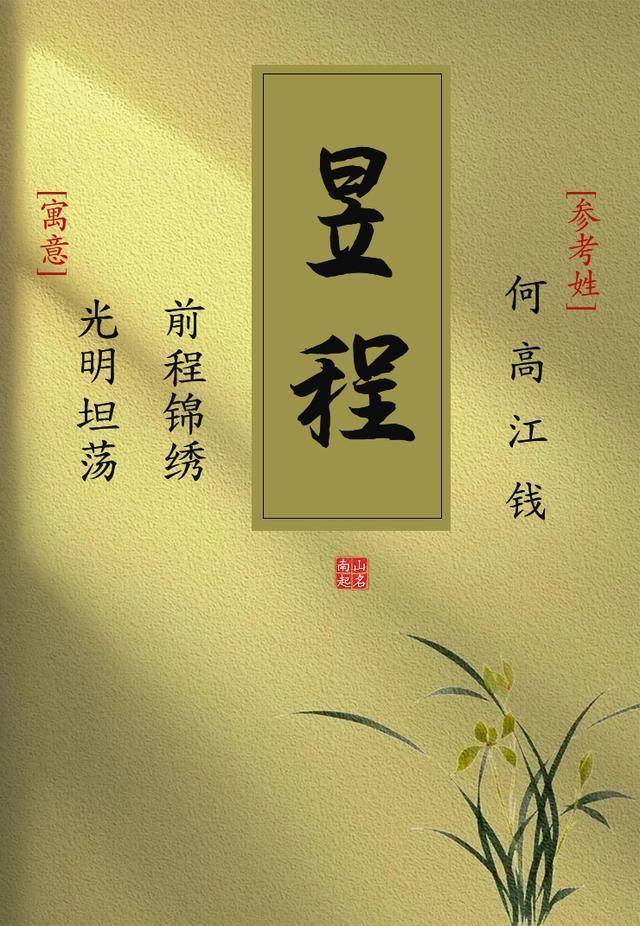 [参考姓]
何高江钱
昱程
前程锦绣
光明坦荡
[寓意]
南山
起名